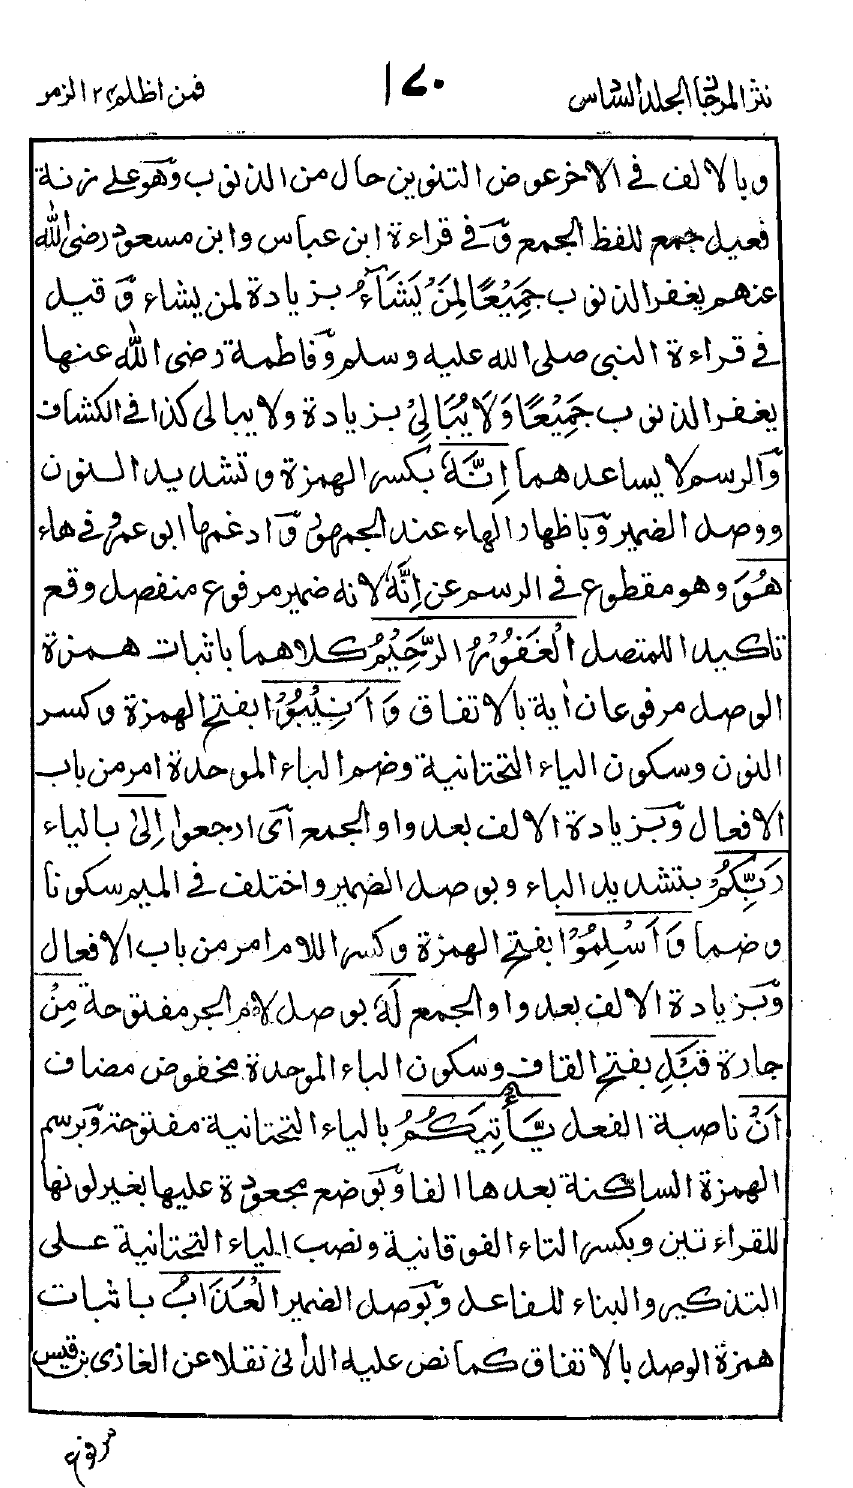 نثر المرجان الجلد السادس ١٧٠ فمن اظلم ٢٤ الزمر
وبالالف فى الاخر عوض التنوين حال من الذنوب وهو على زنة
فعيل جمع للفظ الجمع وفى قراءة ابن عباس وابن مسعود رضى الله
عنهم يغفر الذنوب جَمِيْعًا لِمَنْ يَشَآءُ بزيادة لمن يشاء وقيل
فى قراءة النبى صلى الله عليه وسلم وفاطمة رضى الله عنها
يغفر الذنوب جَمِيْعًا وَلَا يُبَالِىْ بزيادة ولا يبالى كذا فى الكشاف
والرسم لا يساعدهما اِنَّهٗ بكسر الهمزة وتشديد النون
ووصل الضمير وباظهار الهاء عند الجمهور وادغمها ابو عمرو فى هاء
هُوَ وهو مقطوع فى الرسم عن اِنَّهٗ لانه ضمير مرفوع منفصل وقع
تاكيدا للمتصل الْغَفُوْرُ الرَّحِيْمُ كلاهما باثبات همزة
الوصل مرفوعان اٰية بالاتفاق وَاَنِيْبُوْا بفتح الهمزة وكسر
النون وسكون الياء التحتانية وضم الباء الموحدة امر من باب
الافعال وبزيادة الالف بعد واو الجمع اى ارجعوا اِلىٰ بالياء
رَبِّكُمْ بتشديد الباء وبوصل الضمير واختلف فى الميم سكونا
وضما وَاَسْلِمُوْا بفتح الهمزة وكسر اللام امر من باب الافعال
وبزيادة الالف بعد واو الجمع لَهٗ بوصل لام الجر مفتوحة مِنْ
جارة قَبْلِ بفتح القاف وسكون الباء الموحدة مخفوض مضاف
اَنْ ناصبة الفعل يَّاْتِيَكُمُ بالياء التحتانية مفتوحة وبرسم
الهمزة الساكنة بعدها الفا وبوضع مجعودة عليها بغير لونها
للقراءتين وبكسر التاء الفوقانية ونصب الياء التحتانية على
التذكير والبناء للفاعل وبوصل الضمير الْعَذَابُ باثبات
همزة الوصل بالاتفاق كما نص عليه الدانى نقلا عن الغازى بن قيس